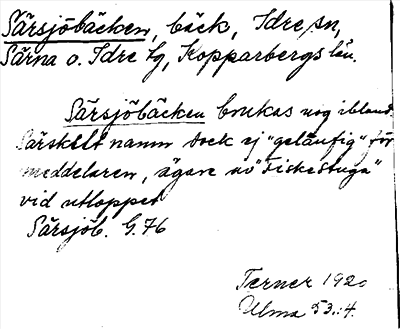 Särsjöbäcken, bäck, Idre sn,
Särna o. Idre tg, Kopparbergs län.
Särsjöbäcken brukas nog ibland.
Särskilt namn dock ej "geläufig" för
meddelaren, ägare av "Fiskestuga"
vid utloppet
Särsjöb. G.76
Terner 1920
Ulma 53:4.